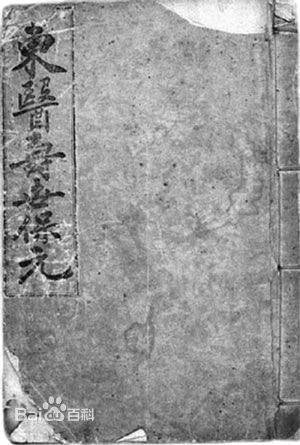 東醫壽世保元
Bai百科